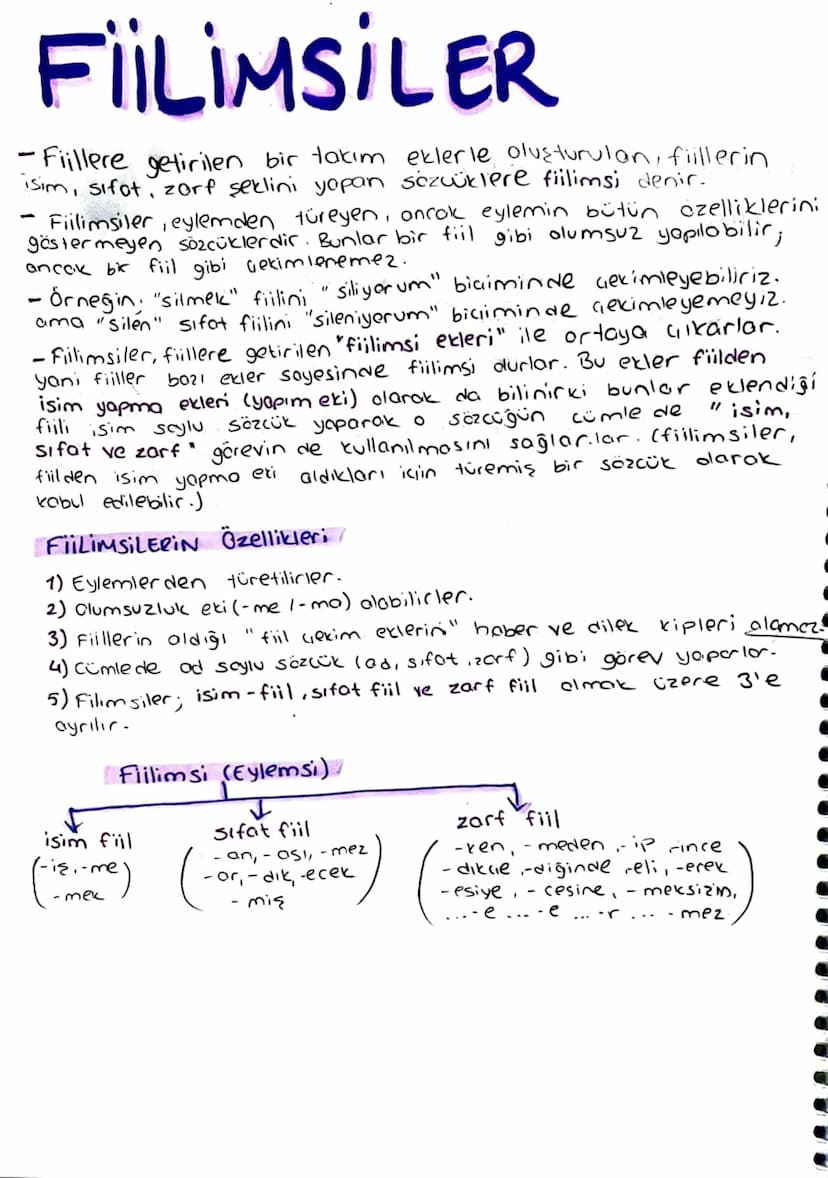 FİİLİMSİLER
- Fiillere getirilen bir takım eklerle oluşturulan, fiillerin
isim, sıfat, zarf şeklini yapan sözcüklere fiilimsi denir.
- Fiilimsiler, eylemden türeyen, ancak eylemin bütün özelliklerini
göstermeyen sözcüklerdir. Bunlar bir fiil gibi olumsuz yapılabilir;
ancak bir fiil gibi çekimlenemez.
- Örneğin; "silmek" fiilini "siliyorum" biçiminde çekimleyebiliriz.
ama "silen" sıfat fiilini "sileniyorum" biçiminde çekimleyemeyiz.
- Fiilimsiler, fiillere getirilen "fiilimsi ekleri" ile ortaya çıkarlar.
yani fiiller bazı ekler sayesinde fiilimsi olurlar. Bu ekler fiilden
isim yapma ekleri (yapım eki) olarak da bilinirki bunlar eklendiği
fiili isim soylu sözcük yaparak o sözcüğün cümle de "isim,
sıfat ve zarf" görevin de kullanılmasını sağlar.lar. (fiilimsiler,
fiilden isim yapma eki aldıkları için türemiş bir sözcük olarak
kabul edilebilir.)
FİİLİMSİLERİN Özellikleri
1) Eylemlerden türetilirler.
2) Olumsuzluk eki (-me /-ma) alabilirler.
3) Fiillerin aldığı "fiil çekim eklerin" haber ve dilek kipleri alamaz.
4) Cümlede ad soylu sözcük (ad, sıfat, zarf) gibi görev yaparlar.
5) Filimsiler; isim-fiil, sıfat fiil ve zarf fiil olmak üzere 3'e
ayrılır.
Fiilimsi (Eylemsi)
isim fiil
(-iş, -me
-mek)
sıfat fiil
(-an, -ası, -mez
-ar, -dik, -ecek
-miş)
zarf fiil
(-ken, -meden, -ip -ince
-dikçe, -diğinde, -eli, -erek
-esiye, -cesine, -meksizin,
...-e ...-e ...-r ... -mez)